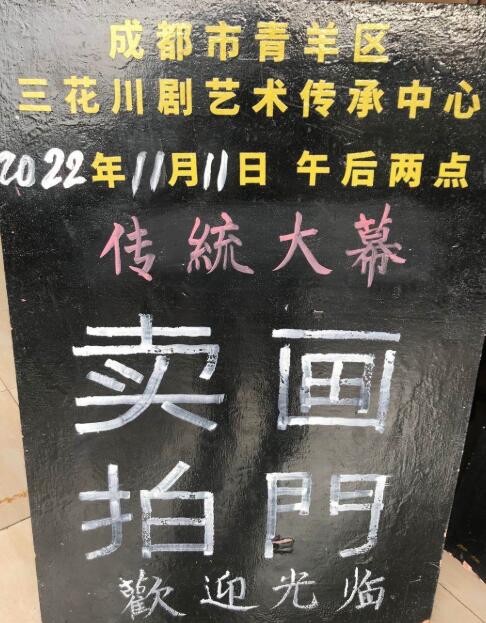 成都市青羊区
三花川剧艺术传承中心
2022年11月11日 午后两点
传統大幕
卖画
拍門
歡迎光临